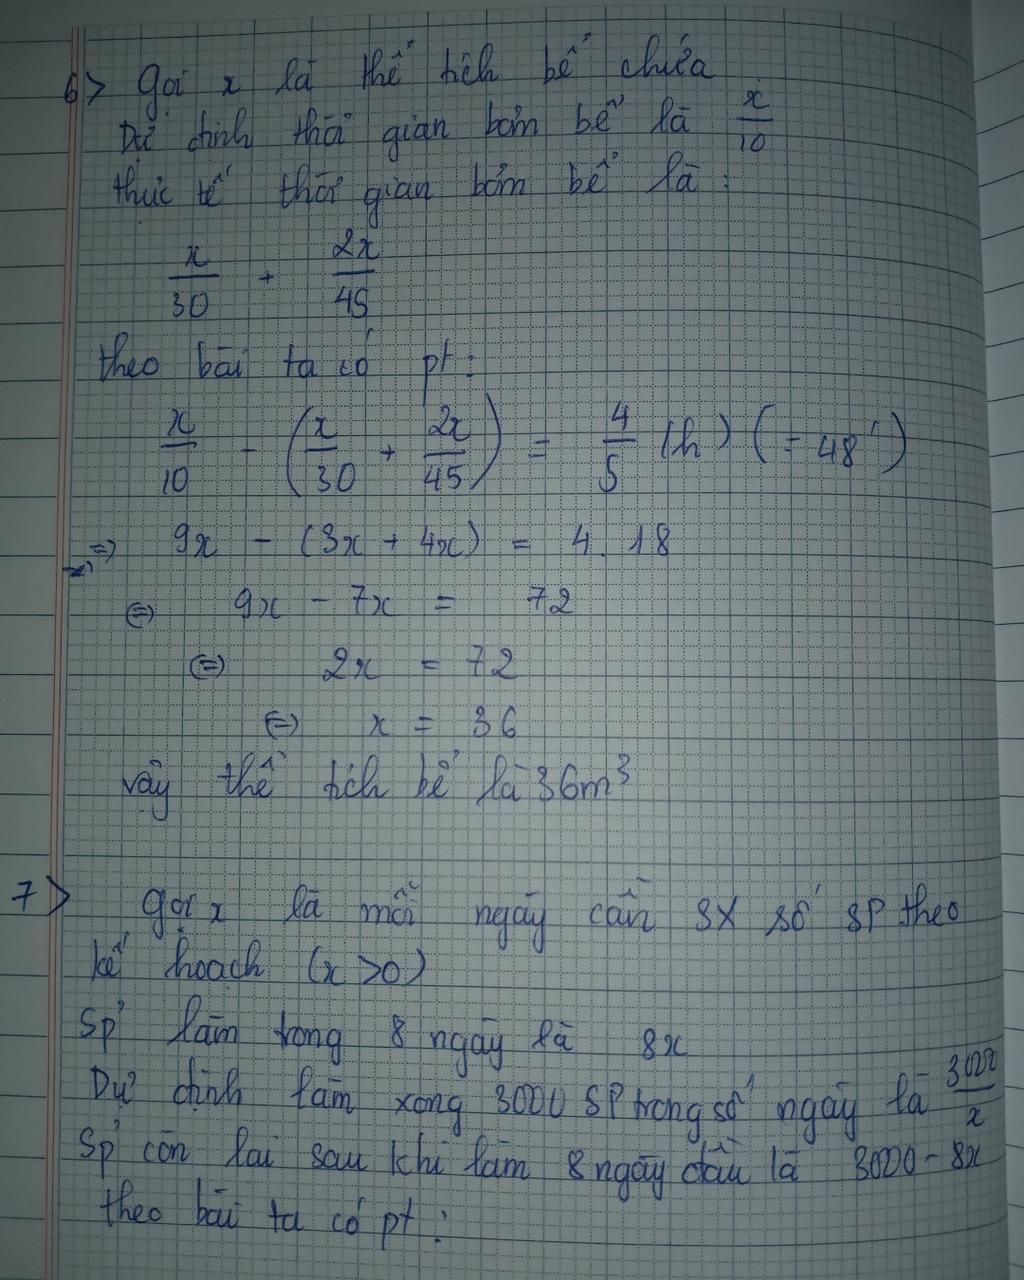 6> Gọi x là thể tích bể chứa
Dự định thời gian bơm bể là x/10
thực tế thời gian bơm bể là :
x/30 + 2x/45
theo bài ta có pt :
x/10 - (x/30 + 2x/45) = 4/5 (h) (= 48')
=> 9x - (3x + 4x) = 4.18
(=) 9x - 7x = 72
(=) 2x = 72
(=) x = 36
vậy thể tích bể là 36m³
7> Gọi x là mỗi ngày cần SX số SP theo
kế hoạch (x >0)
Sp' làm trong 8 ngày là 8x
Dự định làm xong 3000 SP trong số ngày là 3000/x
Sp' còn lại sau khi làm 8 ngày đầu là 3000 - 8x
theo bài ta có pt :